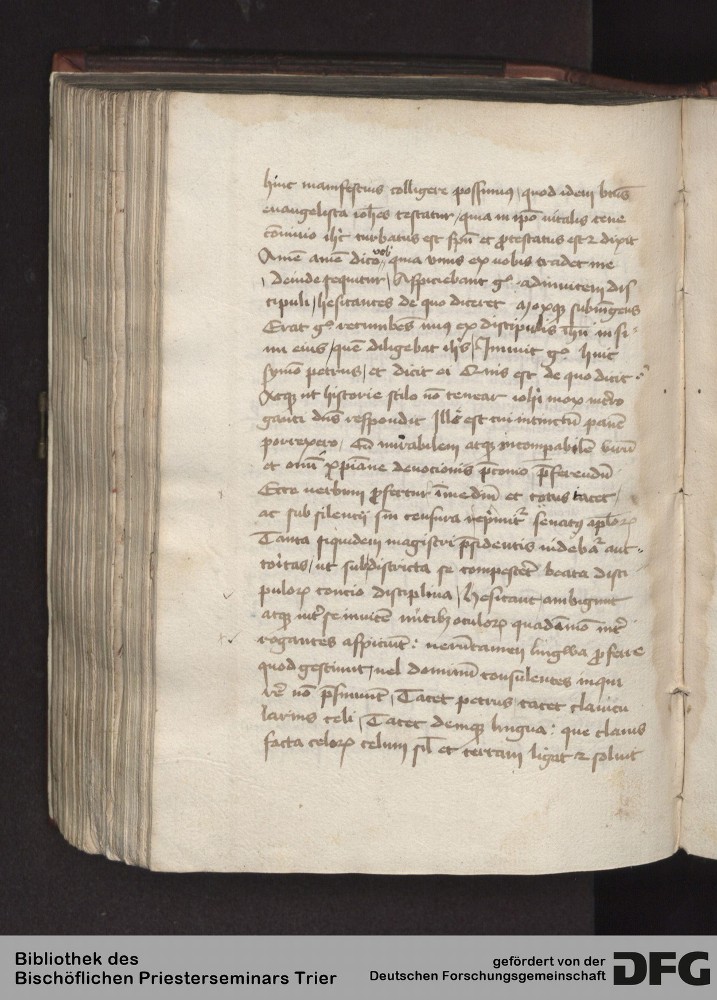 hinc manifestius colligere possumus / quod idem btūs
euangelista ioh̄es testatur / quia in ip̄o vitalis cene
cōniuio ih̄c turbatus est sp̄u et protestatus est ⁊ dixit
Amē amē dico vob quia vnus ex vobis tradet me
/ Deinde sequitur / Aspiciebant gͦ adinuicem dis
cipuli / hesitantes de quo diceret Moxqꝫ subiūgens
Erat gͦ recumbēs vnus ex discipulis ih̄u in si⸗
nu eius / quē diligebat ih̄s / Innuit gͦ huic
symō petrus / et dicit ei Quis est de quo dicit
Atqꝫ ut historie stilo nō tenear ioh̄i mox
dn̄s respondit Ille est cui intinctū panē
porrexero / O mirabilem atqꝫ incompabilē virū
et om̄i xp̄iane deuocionis p̄conio p̄ferendū
Ecce verbum ꝓfertur inmediū et totus tacet /
ac sub silencij sui censura rep̄mitʳ senatus aplo⁊
Tanta siquidem magistri p̄sidentis videbaʳ auc⸗
toritas / ut sub districta se compescet beata disci
pulo⁊ concio disciplina / hesitant ambigunt
atqꝫ int̄ se inuicē nutibꝫ oculo⁊ quadāmō int̄
rogantes aspiciūt : verūtamen lingwa ꝓferre
quod gestiunt / vel dominū consulentes inqui
rē nō p̄sumūt / Tacet petrus tacet clauicu
larius celi / Tacet deniqꝫ lingua : que clauis
facta celo⁊ celum sil̄ et terram ligat ⁊ soluit
Bibliothek des
Bischöflichen Priesterseminars Trier
gefördert von der
Deutschen Forschungsgemeinschaft
DFG